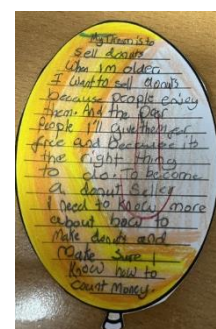 My Dream is to
sell donuts
when im older
I want to sell donuts
because people enjoy
them. And the poor
people I'll give them for
free and Because it's
the right thing
to do. To become
a donut seller
I need to know more
about how to
Make donuts and
Make Sure I
know how to
count Money.